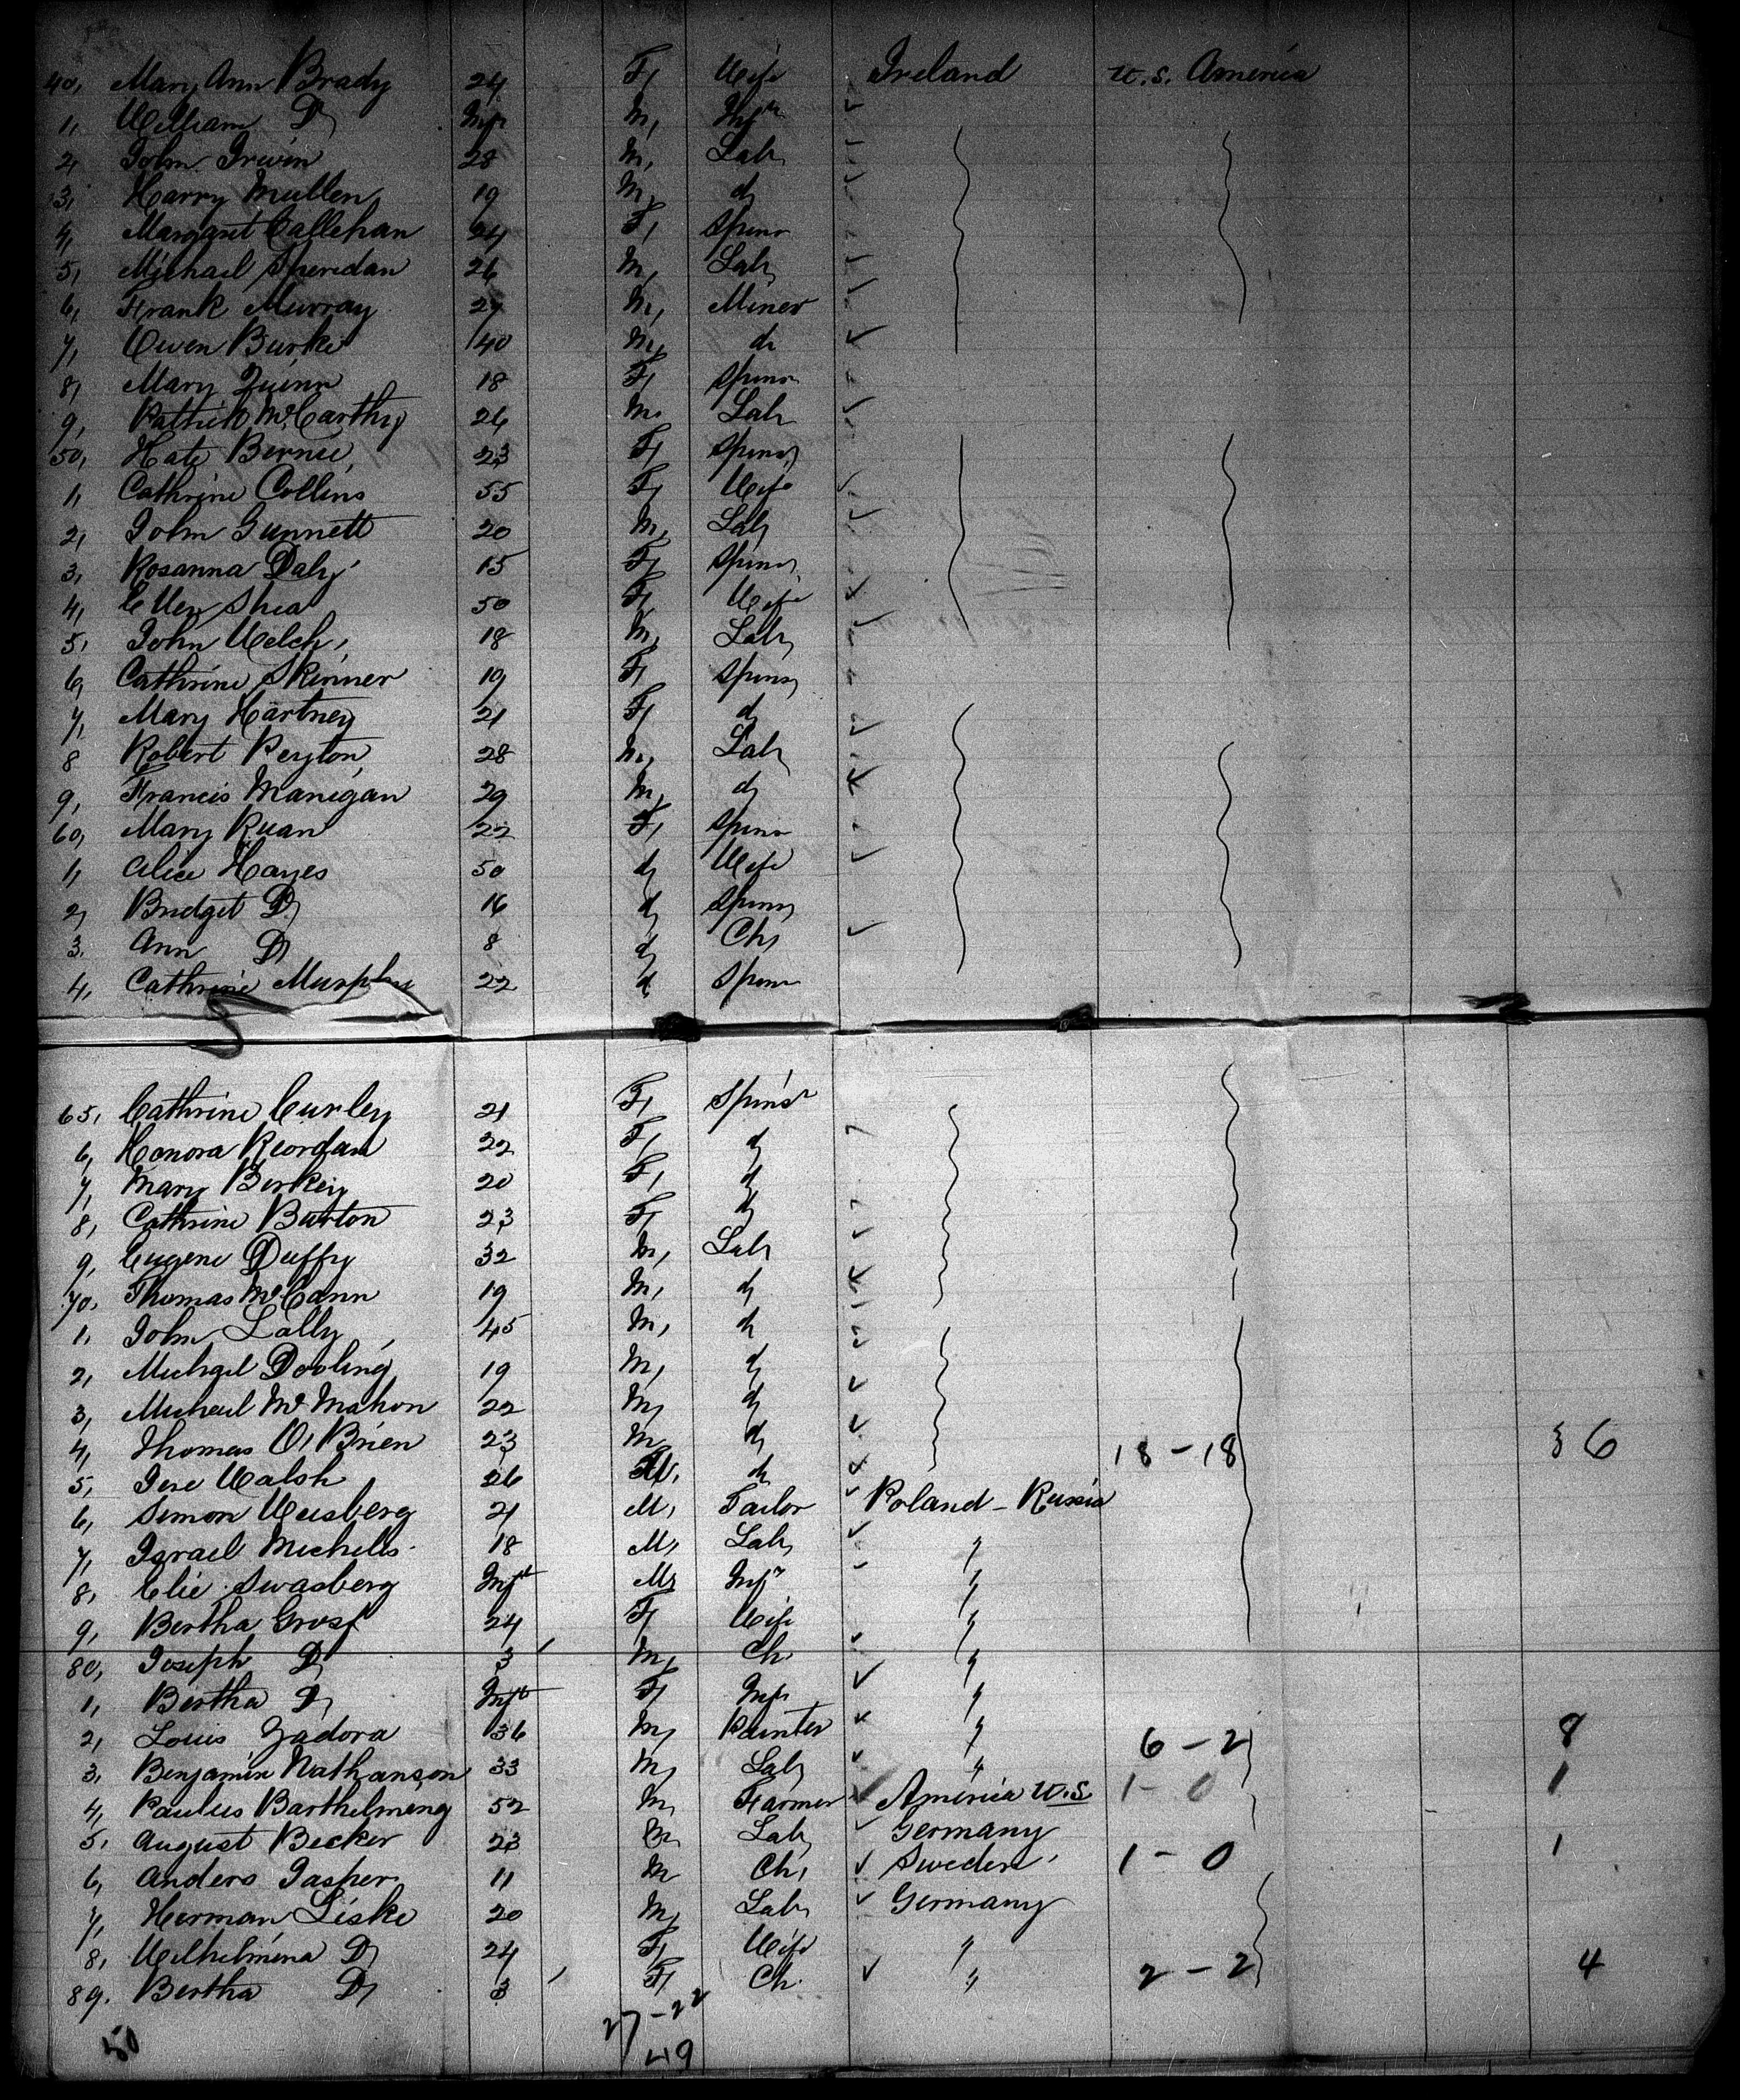 40, Mary Ann Brady 24 F, Wife Ireland U.S. America
1, William D, Inft M, Inft
2, John Irwin 28 M, Lab,
3, Harry Mullen 19 M, d,
4, Margaret Callehan 24 F, Spinr
5, Michael Sheridan 26 M, Lab,
6, Frank Murray 27 M, Miner
7, Owen Burke 40 M, d,
8, Mary Quinn 18 F, Spinr
9, Patrick McCarthy 26 M. Lab,
50, Kate Bernie, 23 F, Spinr
1, Cathrine Collins 55 F, Wife
2, John Gunnett 20 M, Lab,
3, Rosanna Daly 15 F, Spinr
4, Ellen Shea 50 F, Wife
5, John Welch, 18 M, Lab,
6, Cathrine Skinner 19 F, Spinr
7, Mary Hartney 21 F, d,
8 Robert Peyton 28 M, Lab,
9, Francis Manigan 29 M, d,
60, Mary Ruan 22 F, Spinr
1, Alice Hayes 50 d, Wife
2, Bridget D, 16 d, Spinr
3. Ann D, 8 d, Ch,
4, Cathrine Murphy 22 d, Spinr
65, Cathrine Curley 21 F, Spinsr
6, Honora Reordan 22 F, d,
7, Mary Berkey 20 F, d,
8, Cathrine Burton 23 F, d,
9, Eugene Duffy 32 M, Lab,
70, Thomas McCann 19 M, d,
1, John Lally 45 M, d,
2, Michael Dooling 19 M, d,
3, Micheal McMahon 22 M, d,
4, Thomas O'Brien 23 M, d, 18-18 36
5, Jere Walsh 26 M, d,
6, Simon Weisberg 21 M, Tailor Poland - Russia
7, Israel Michells 18 M, Lab, "
8, Elie Swasberg Inft M, Inft "
9, Bertha Gross 24 F, Wife "
80, Joseph D, 3 M, Ch. "
1, Bertha D, Inft F, Inft "
2, Louis Zadora 36 M, Painter " 6-2 8
3, Benjamin Nathanson 33 M, Lab, "
4, Paulus Barthelmeng 52 M, Farmer America U.S. 1-0 1
5, August Becker 23 M, Lab, Germany
6, Anders Jasper 11 M Ch, Sweden 1-0 1
7, Herman Liske 20 M, Lab, Germany
8, Wilhelmina D, 24 F, Wife "
89. Bertha D, 3 F, Ch. " 2-2 4
27-22
50 49